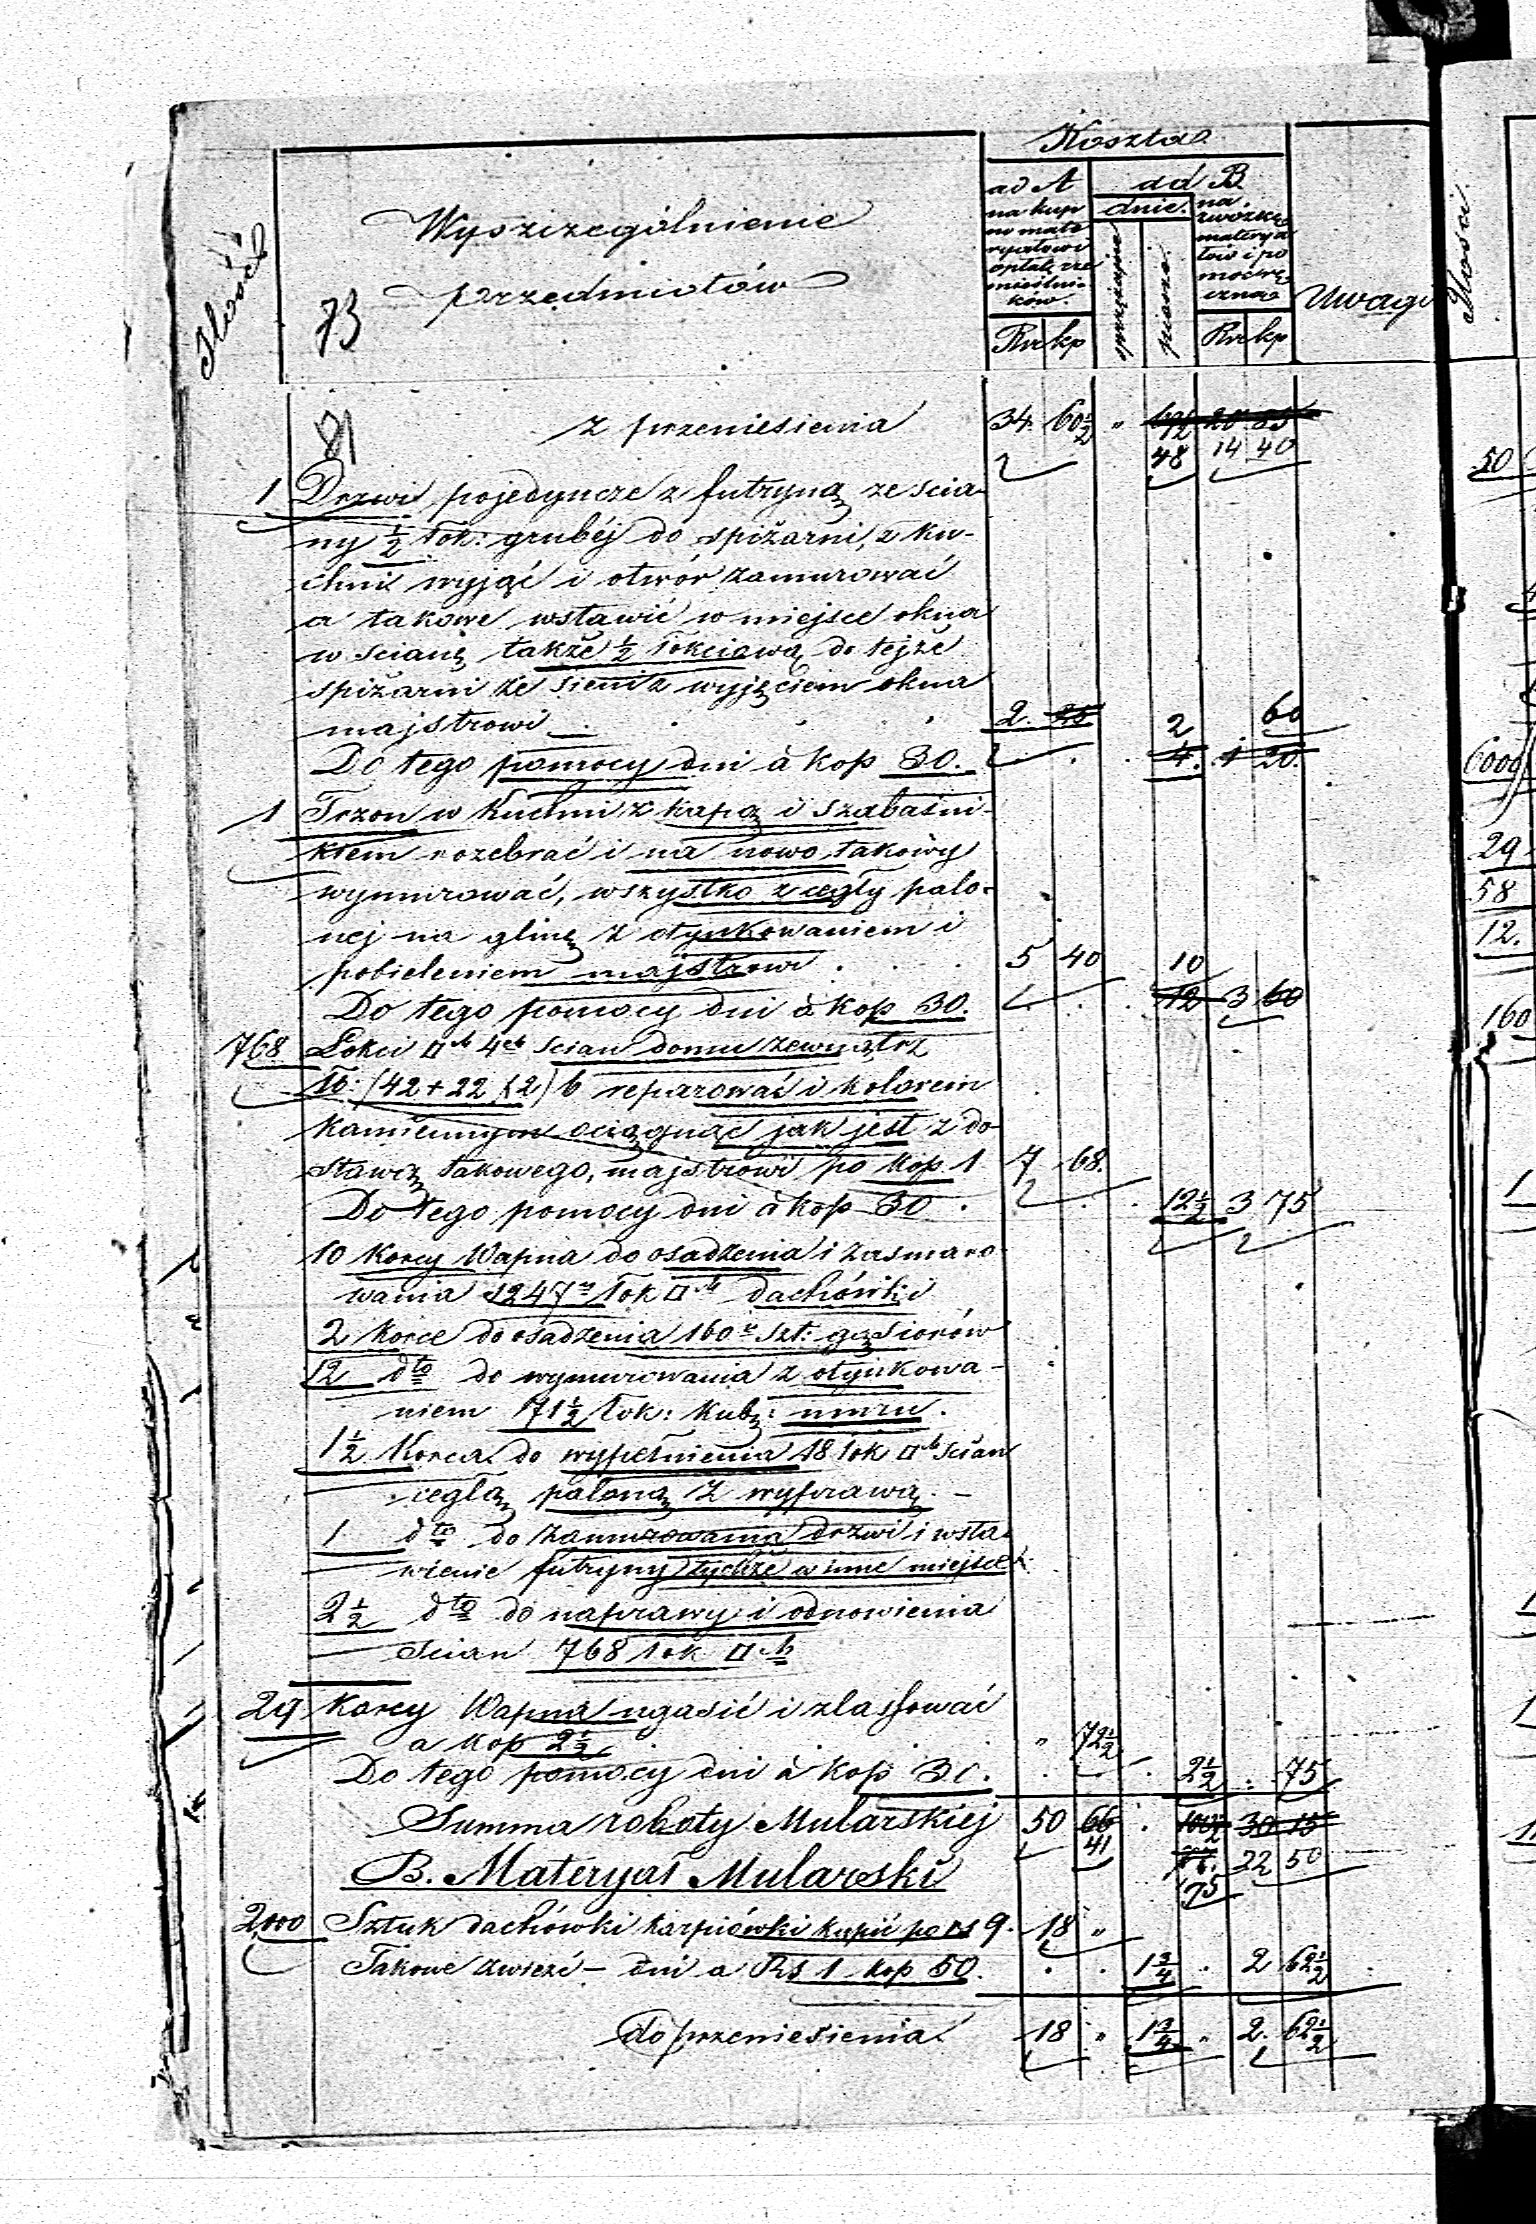 Ilość
Wyszczególnienie
przedmiotów
73
Koszta
ad A
na kup
no mate
ryałów i
opłatę rze
mieślni
ków.
ad B
dnie.
sprzężajne
piesze.
na
zwózkę
materya
łów i po
moc rę
czną
Uwagi
Rs kp
Rs kp
81
z przeniesienia 34. 60 1/2 " 20 55
48 14 40
1 Drzwi pojedyncze z futryną ze ścia-
ny 1/2 łok: grubéj do spiżarni, z ku-
chni wyjąć i otwór zamurować
a takowe wstawić w miejsce okna
w ścianę także 1/2 łokciową do tejże
spiżarni ze sieni z wyjęciem okna
majstrowi 2. 25 2 60
Do tego pomocy dni à kop 30. 4. 1 20
1 Trzon w kuchni z kapą i szabaśni-
kiem rozebrać i na nowo takowy
wymurować, wszystko z cegły palo-
nej na glinę z otynkowaniem i
pobieleniem majstrowi 5 40 10
Do tego pomocy dni à kop 30. 12 3 60
768 Łokci □ch 4ch ścian domu zewnątrz
łó: (42 + 22 × 2) 6 reparować i kolorem
kamiennym ociągnąć jak jest z do
stawą takowego, majstrowi po kop 1 7 68.
Do tego pomocy dni à kop 30. 12 1/2 3 75
10 Korcy Wapna do osadzenia i zasmaro-
wania 1247 łok □ch dachówki
2 Korce do osadzenia 160 szt: gąsiorów
12 dto do wymurowania z otynkowa-
niem 171 1/2 łok: kub: muru.
1 1/2 Korca do wypełnienia 48 łok □ch ścian
cegłą paloną z wyprawą. -
1 dto do zamurowania drzwi i wsta-
wienie futryny tychże w inne miejsce
2 1/2 dto do naprawy i odnowienia
ścian 768 łok □ch
29 Korcy Wapna ugasić i zlasować
a kop 2 1/2 " 72 1/2
Do tego pomocy dni à kop 30. 2 1/2 75
Summa roboty Mularskiéj 50 66 100 1/2 30 15
41 22 50
75
B. Materyał Mularski
2000 Sztuk dachówki karpiówki kupić po rs 9. 18 "
Takowe zwieźć - dni a Rs 1 kop 50. 1 3/4 2 62 1/2
do przeniesienia 18 " 1 3/4 " 2. 62 1/2
Ilości
50
6000
29
58
12.
160
1